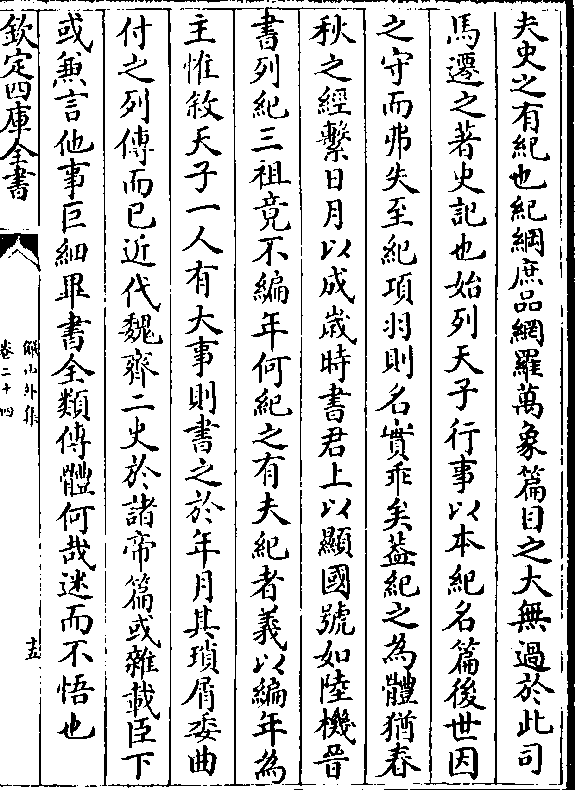 夫史之有紀也紀綱庶品網羅萬象篇目之大無過於此司
馬遷之著史記也始列天子行事以本紀名篇後世因
之守而弗失至紀項羽則名實乖矣葢紀之為體猶春
秋之經繫日月以成嵗時書君上以顯國號如陸機晉
書列紀三祖竟不編年何紀之有夫紀者義以編年為
主惟敘天子一人有大事則書之於年月其瑣屑委曲
付之列傳而已近代魏齊二史於諸帝篇或雜載臣下
或兼言他事巨細畢書全類傳體何哉迷而不悟也
欽定四庫全書
儼山外集
卷二十四
十五